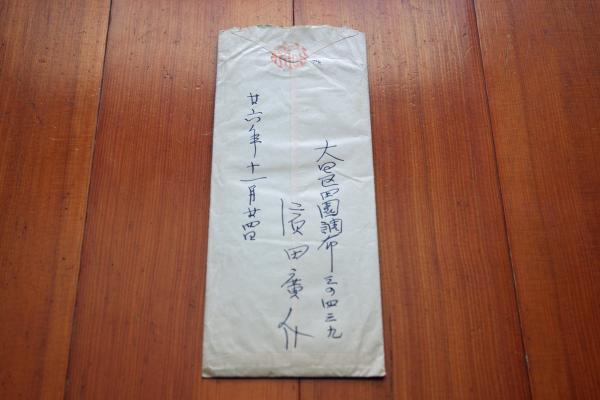 大田区田園調布三の四三九
濱田廣介
廿六年十一月廿四日